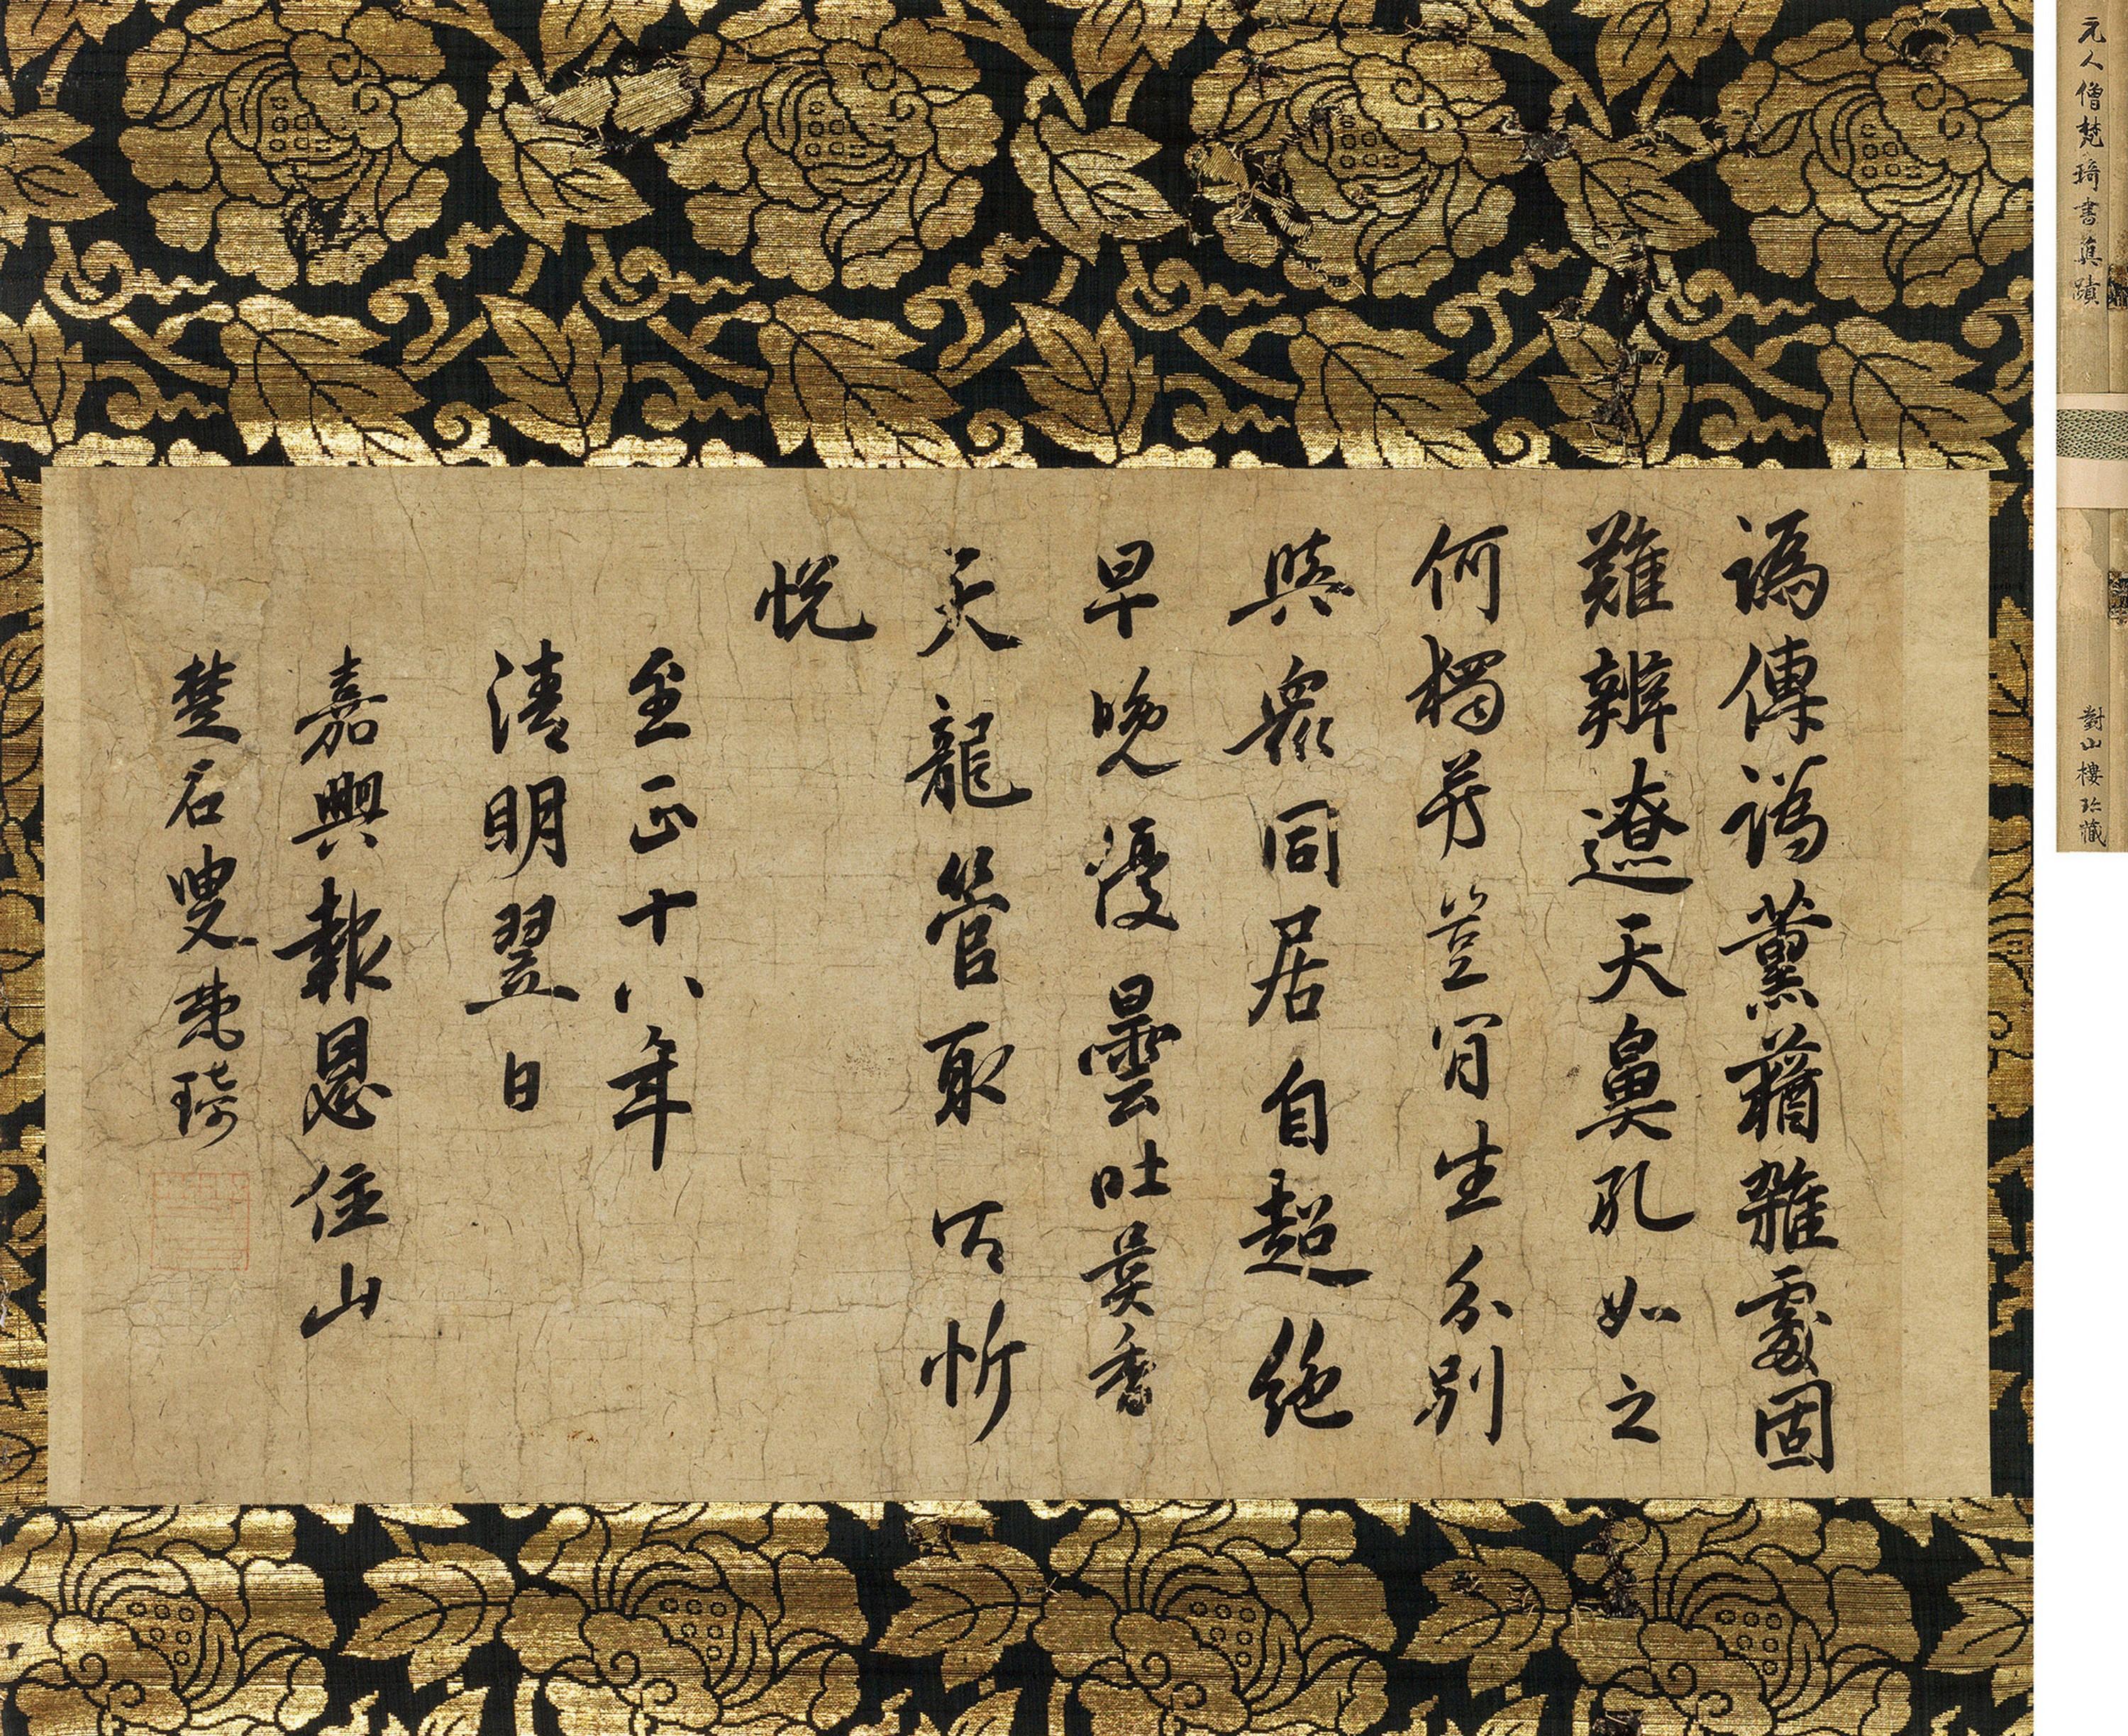 謁傳謁薰蕕雜處固
難辨遼天鼻孔如之
何獨芳豈肯生分別
與眾同居自超絕
早晚優曇吐異香
天龍管取皆忻
悅
至正十八年
清明翌日
嘉興報恩住山
楚石叟梵琦
元人僧梵琦書真蹟
對山樓珍藏